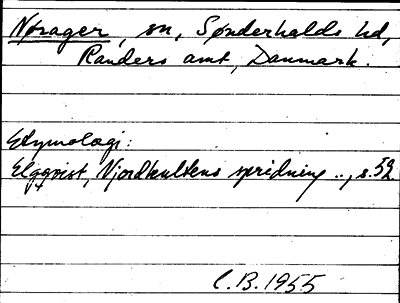 Nørager, sn, Sønderhalds hd,
Randers amt, Danmark.
Etymologi:
Elgqvist, Njordkultens spridning .., s. 59.
C.B. 1955